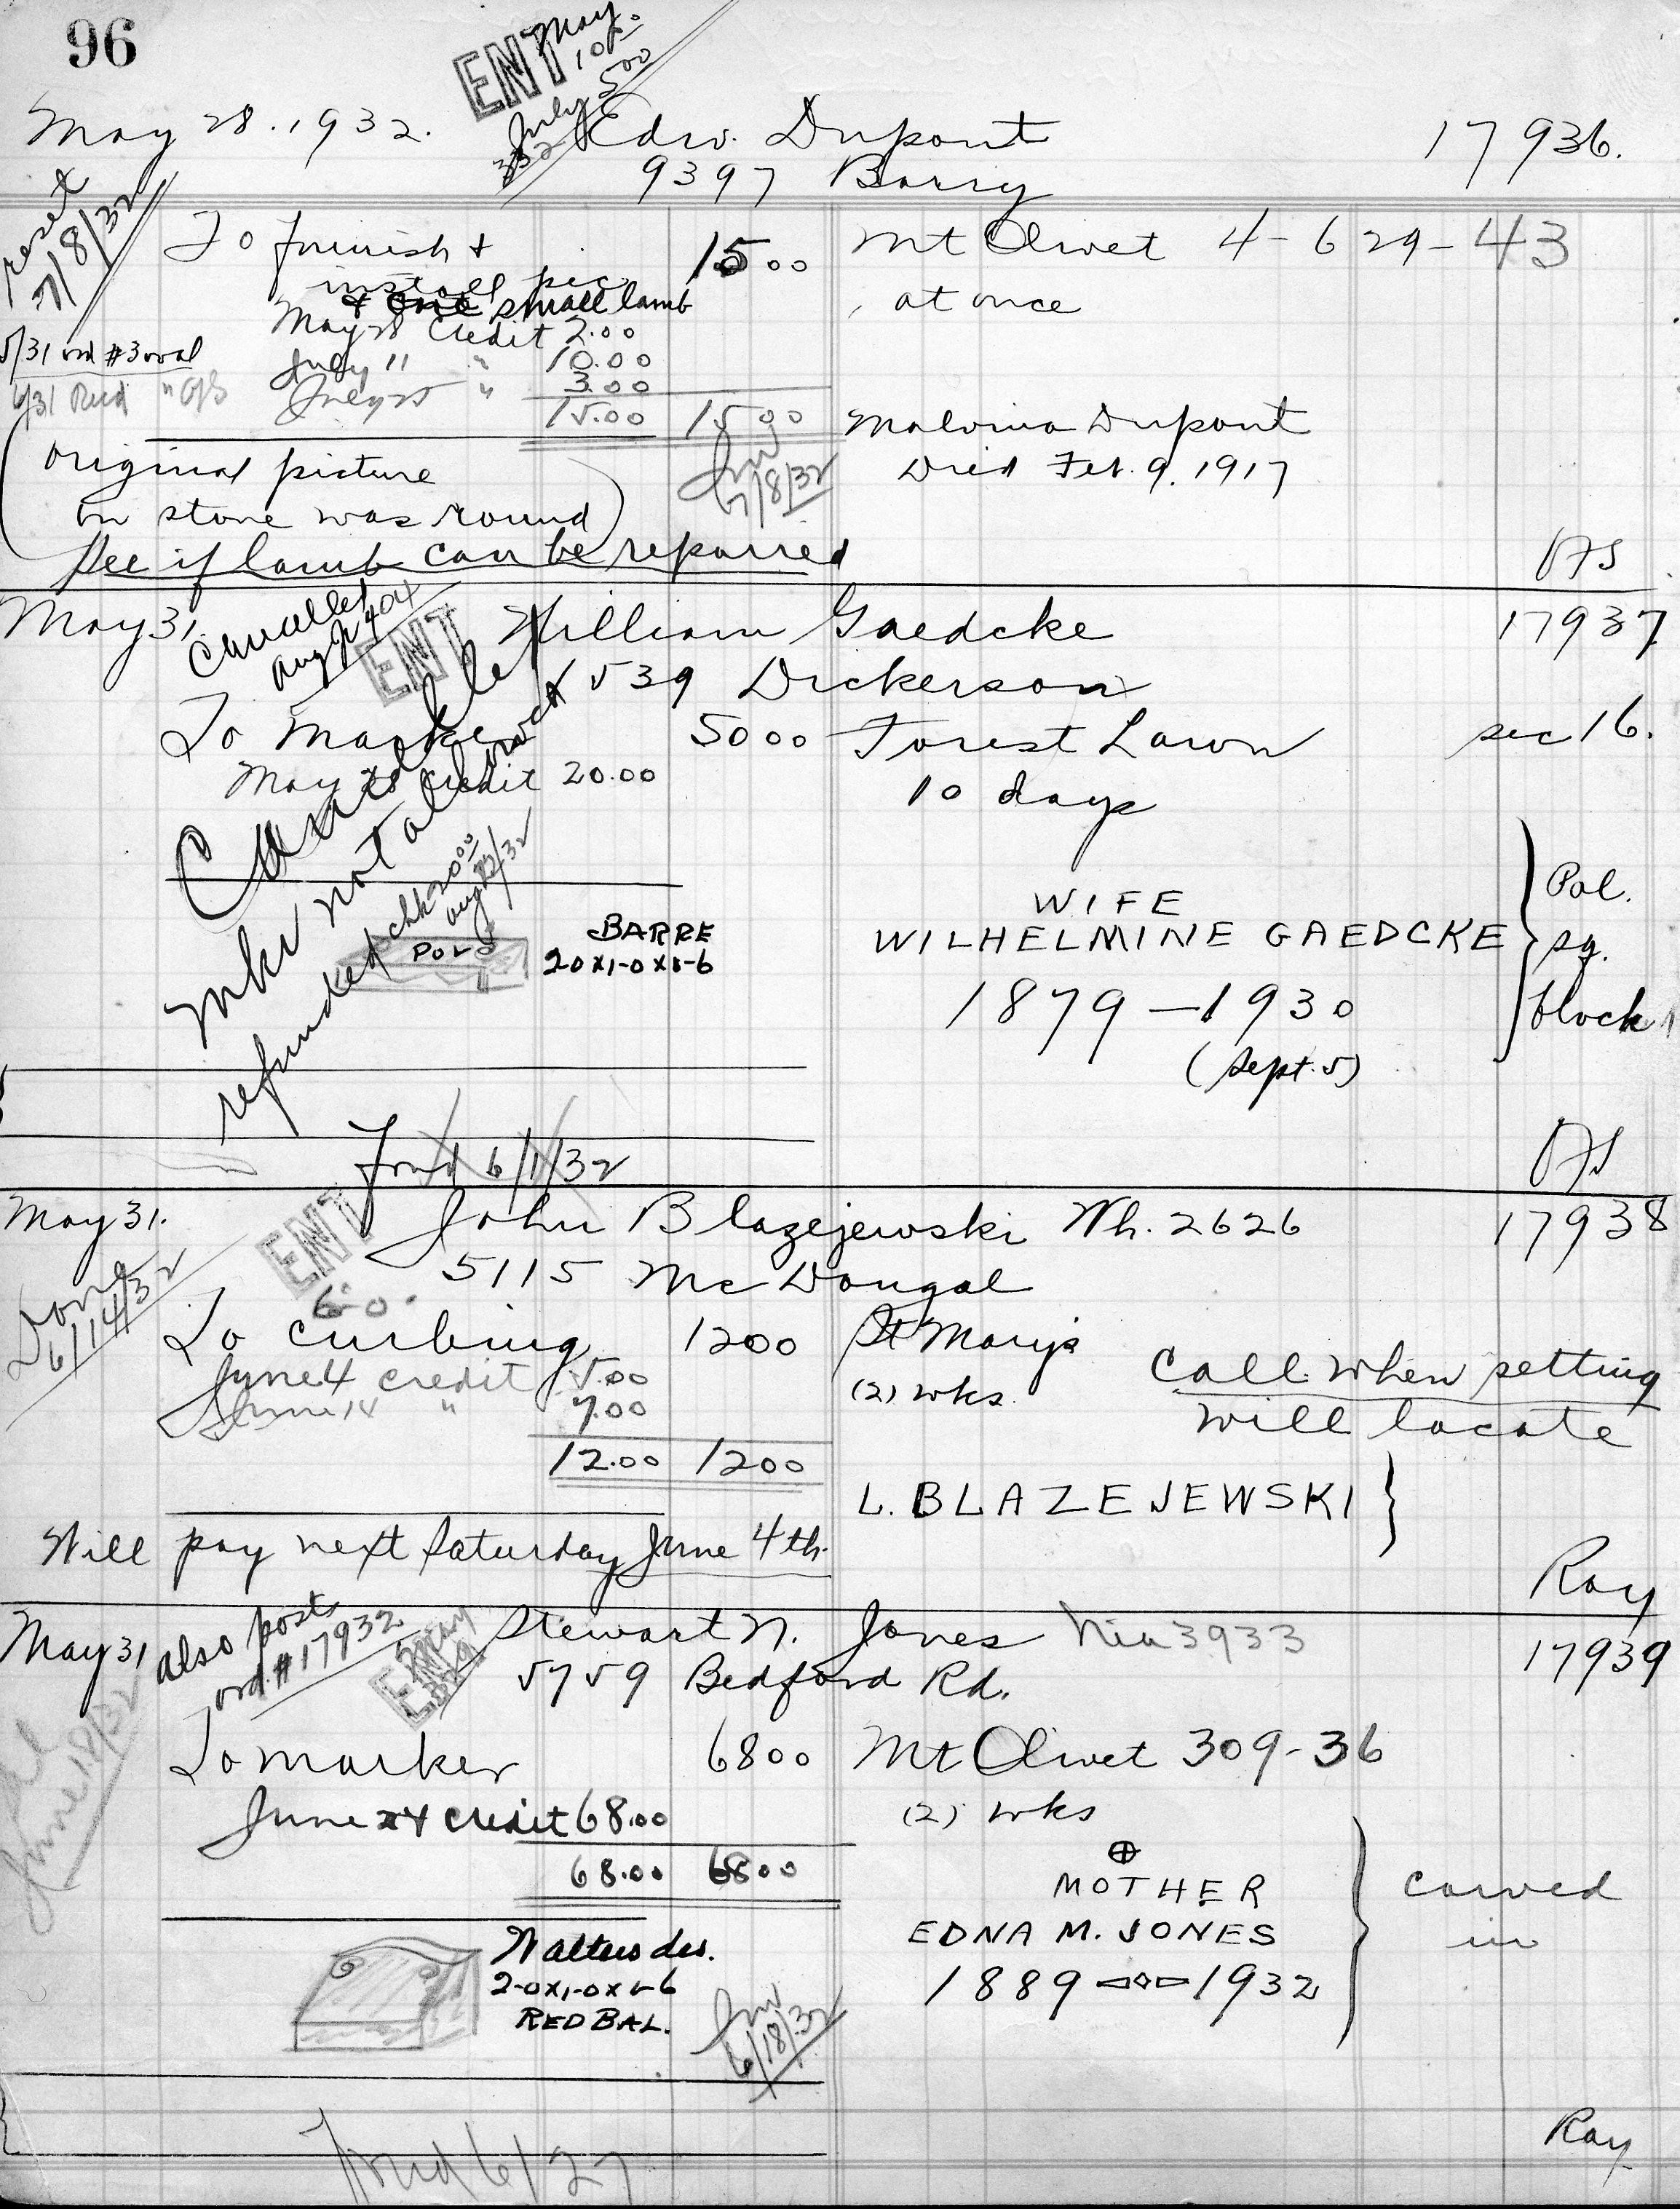 96
ENT May
10.00
July 5.00
332
May 28. 1932. Edw. Dupont 17936.
9397 Barry
reset
7/8/32
To furnish & 15.00 Mt Olivet 4-629-43
install pic at once
& one small lamb
May 28 Credit 2.00
5/31 ord #3 oval July 11 " 10.00
6/31 Recd " July 25 " 3.00
15.00 15.00 Malvina Dupont
Died Feb. 9. 1917
(Original picture
on stone was round)
7/8/32
See if lamb can be repaired
May 31. Cancelled ENT William Gaedcke 17937
539 Dickerson
To Marker 50.00 Forest Lawn sec 16.
May 28 Credit 20.00 10 days
Cancelled
mkr not allowed
refunded chk 20.00
WIFE
WILHELMINE GAEDCKE } Pol.
sq.
block
1879 – 1930
(Sept. 5)
POL BARRE
2-0x1-0x
Found 6/1/32
May 31. ENT John Blazejewski Wh. 2626 17938
5115 McDougal
Done
6/14/32
To curbing 12.00 St Mary's
June 4 credit 5.00 (2) wks. Call when setting
June 14 " 7.00 will locate
12.00 12.00
L. BLAZEJEWSKI }
Will pay next Saturday June 4th.
Ray
May 31 also posts ENT Stewart N. Jones Nia 3933 17939
ord. #17932
5759 Bedford Rd.
June 18/32
To marker 68.00 Mt Olivet 309-36
June 24 credit 68.00 (2) wks
68.00 68.00
MOTHER
EDNA M. JONES } carved
in
1889 – 1932
Walters des.
2-0x1-0x
RED BAL.
6/18/32
6/27
Ray